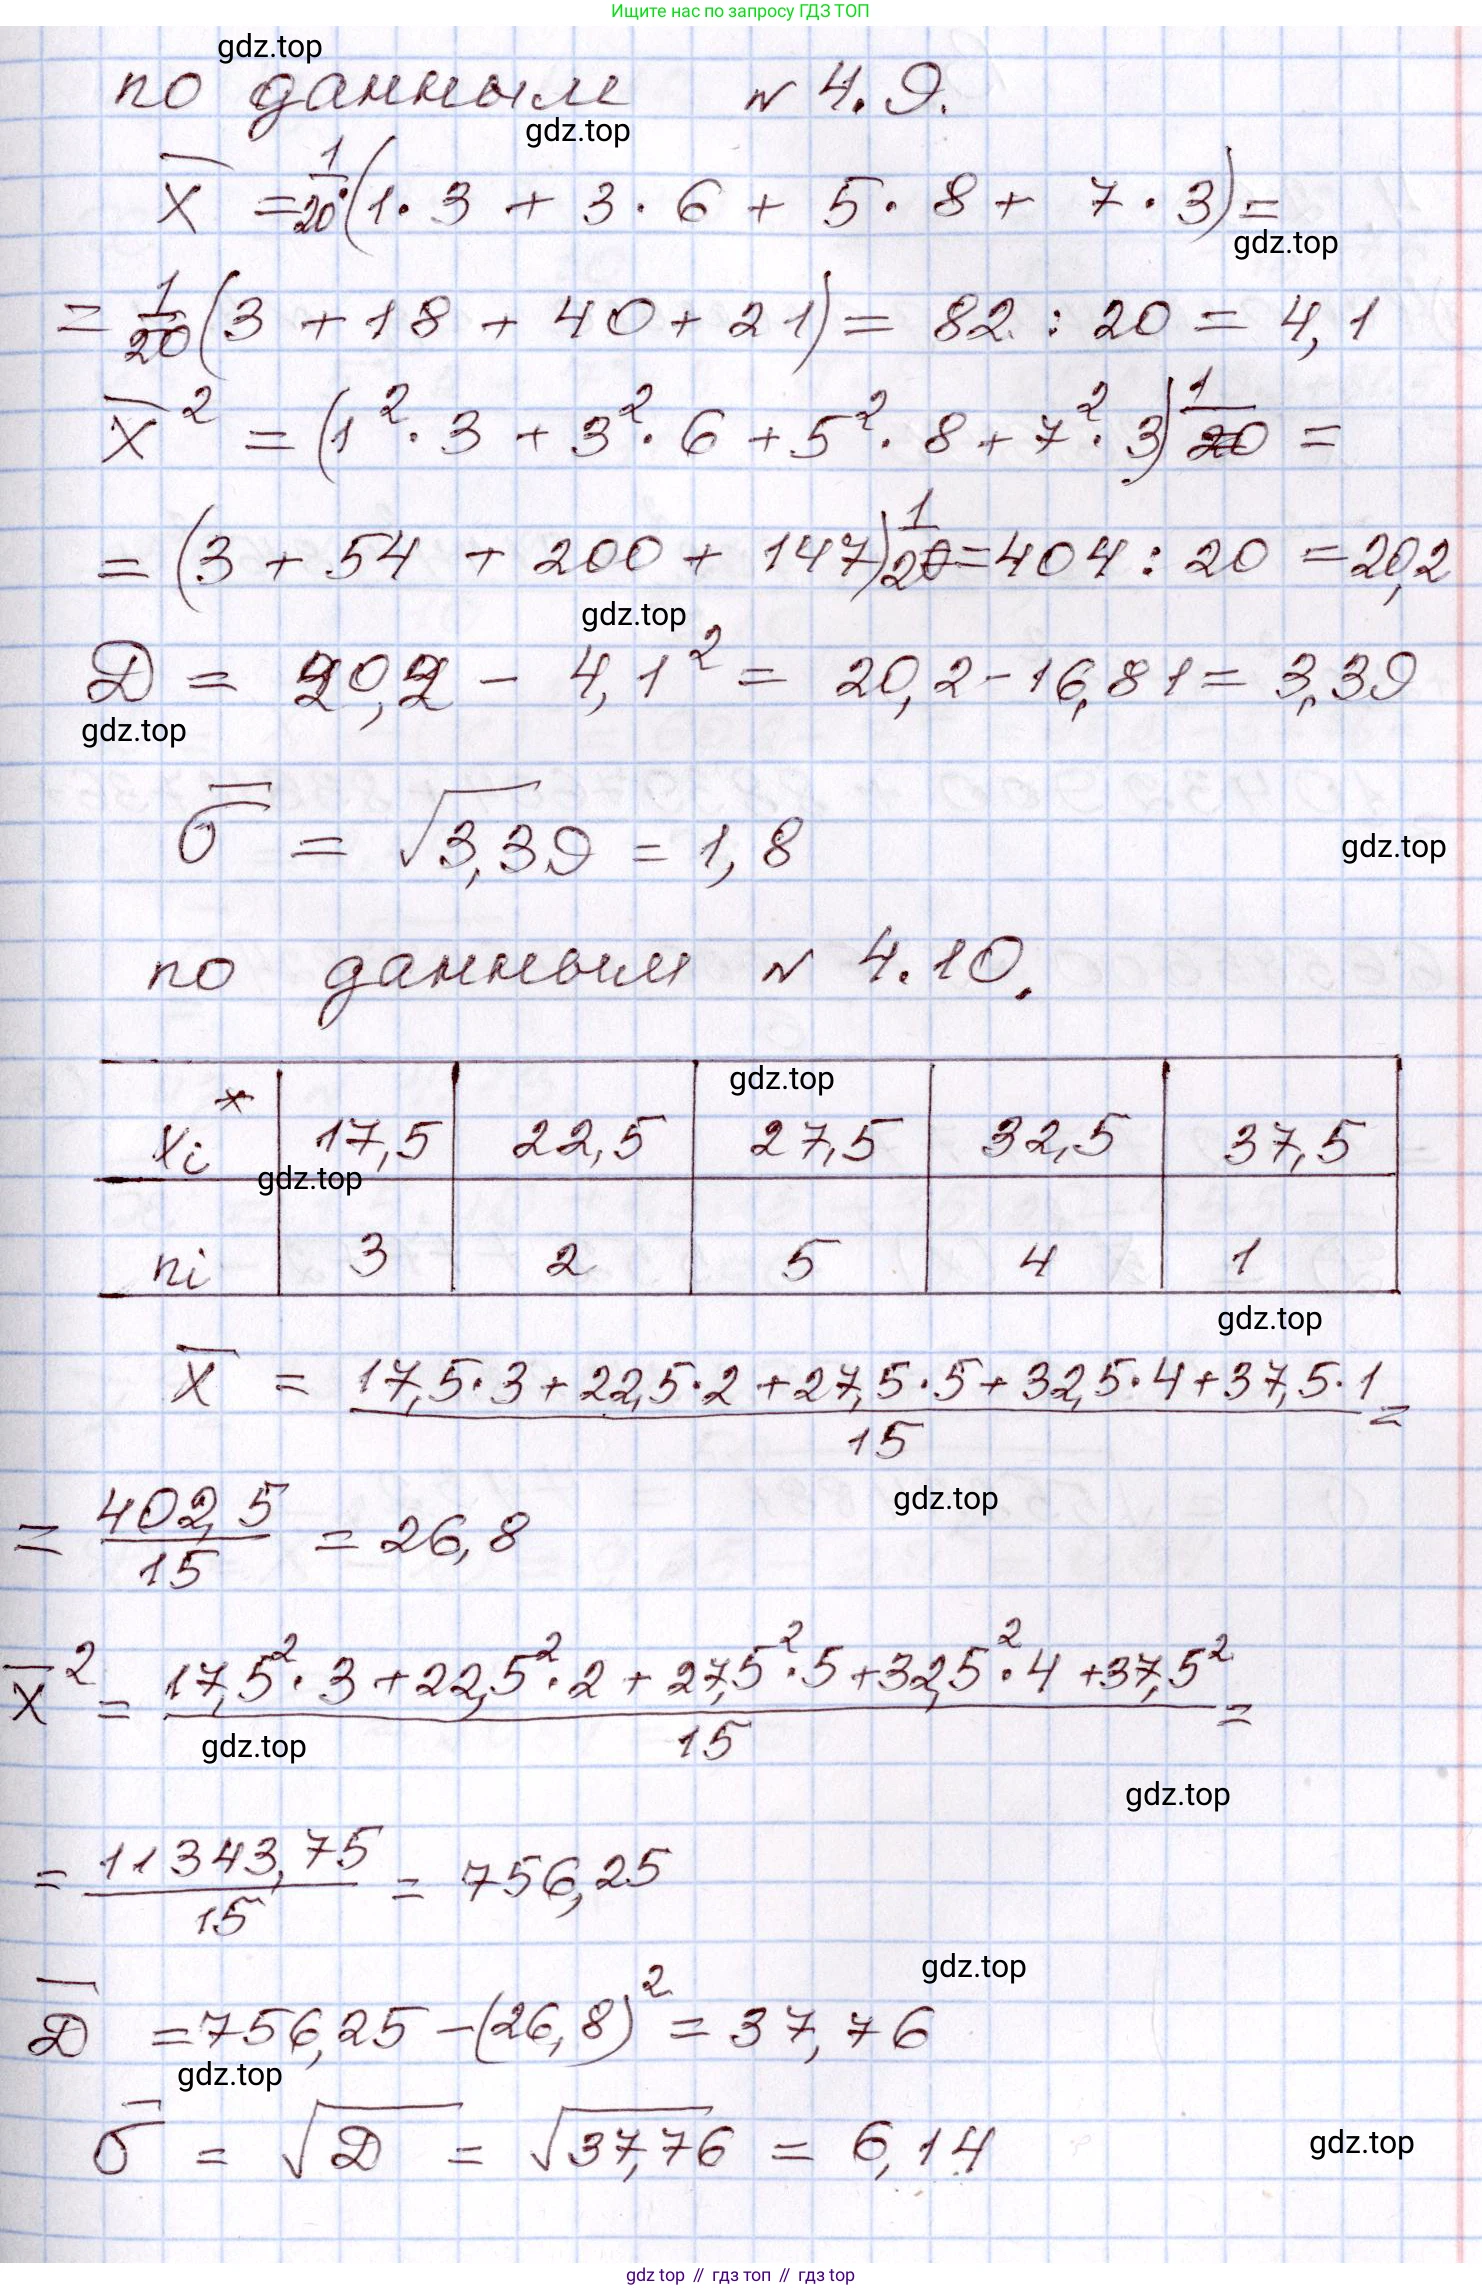 Ищите нас по запросу ГДЗ ТОП
gdz.top
по данным № 4.9.
gdz.top
x̄ = 1/20·(1·3 + 3·6 + 5·8 + 7·3) =
gdz.top
= 1/20 (3 + 18 + 40 + 21) = 82 : 20 = 4,1
x̄² = (1²·3 + 3²·6 + 5²·8 + 7²·3) 1/20 =
= (3 + 54 + 200 + 147) 1/20 = 404 : 20 = 20,2
gdz.top
D = 20,2 - 4,1² = 20,2 - 16,81 = 3,39
gdz.top
σ̄ = √3,39 = 1,8
gdz.top
по данным № 4.10.
gdz.top
xi* 17,5 22,5 27,5 32,5 37,5
gdz.top
ni 3 2 5 4 1
gdz.top
x̄ = (17,5·3 + 22,5·2 + 27,5·5 + 32,5·4 + 37,5·1)/15 =
gdz.top
= 402,5/15 = 26,8
x̄² = (17,5²·3 + 22,5²·2 + 27,5²·5 + 32,5²·4 + 37,5²)/15 =
gdz.top
gdz.top
= 11343,75/15 = 756,25
gdz.top
D̄ = 756,25 - (26,8)² = 37,76
gdz.top
σ̄ = √D = √37,76 = 6,14
gdz.top
gdz top // гдз топ // гдз top